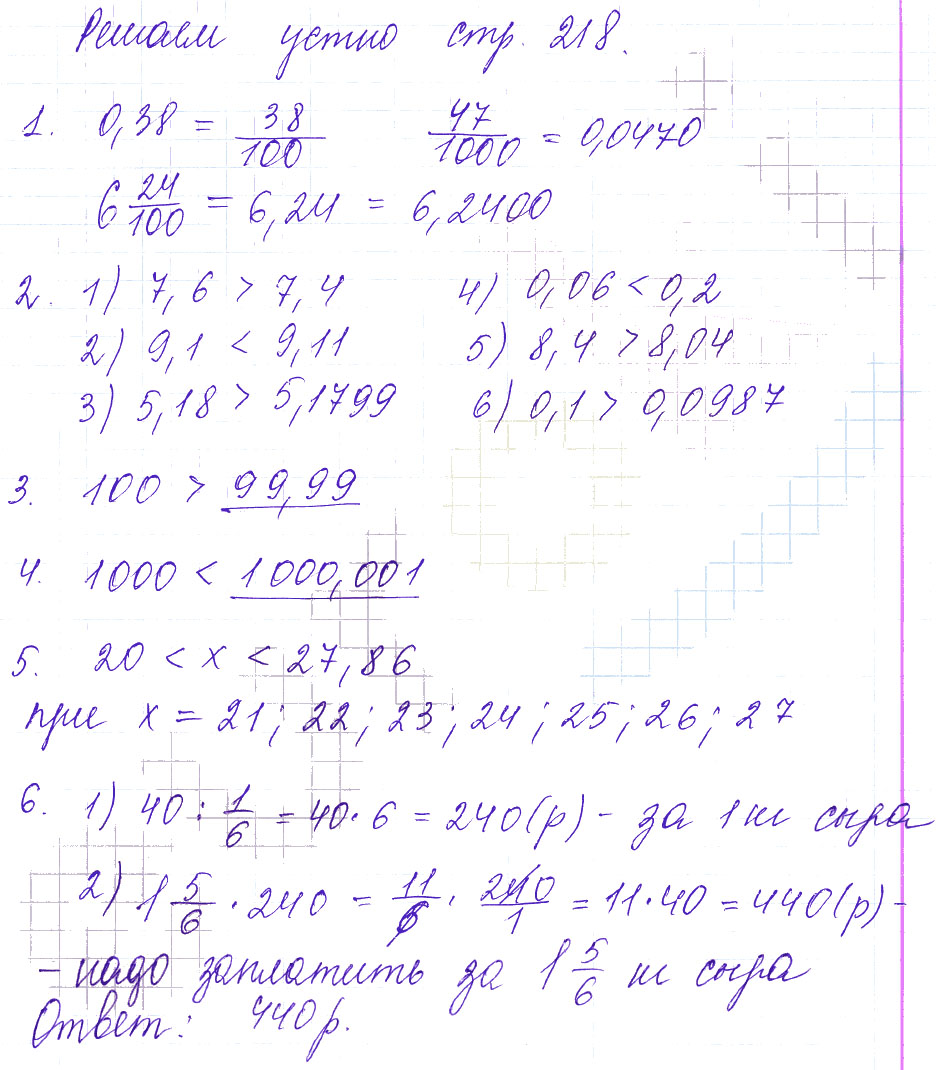 Решаем устно стр. 218.
1. 0,38 = 38/100 47/1000 = 0,0470
6 24/100 = 6,24 = 6,2400
2. 1) 7,6 > 7,4 4) 0,06 < 0,2
2) 9,1 < 9,11 5) 8,4 > 8,04
3) 5,18 > 5,1799 6) 0,1 > 0,0987
3. 100 > 99,99
4. 1000 < 1000,001
5. 20 < x < 27,86
при x = 21; 22; 23; 24; 25; 26; 27
6. 1) 40 : 1/6 = 40·6 = 240(р) - за 1 кг сыра
2) 1 5/6 · 240 = 11/6 · 240/1 = 11·40 = 440(р) -
- надо заплатить за 1 5/6 кг сыра
Ответ: 440 р.